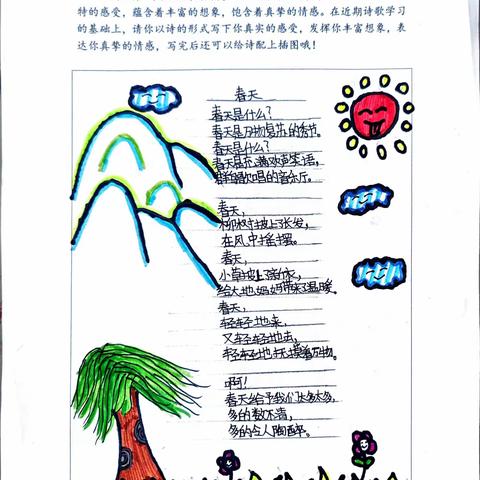 特的感受，蕴含着丰富的想象，饱含着真挚的情感。在近期诗歌学习
的基础上，请你以诗的形式写下你真实的感受，发挥你丰富想象，表
达你真挚的情感，写完后还可以给诗配上插图哦！
春天
春天是什么？
春天是万物复苏的季节。
春天是什么？
春天是充满欢声笑语，
群鸟歌唱的音乐厅。
春天，
柳树披上了长发，
在风中摇摆。
春天，
小草披上了新衣，
给大地妈妈带来了温暖。
春天，
轻轻地来，
又轻轻地去，
轻轻地抚摸着万物。
啊！
春天给予我们太多太多，
多的数不清，
多的令人陶醉。